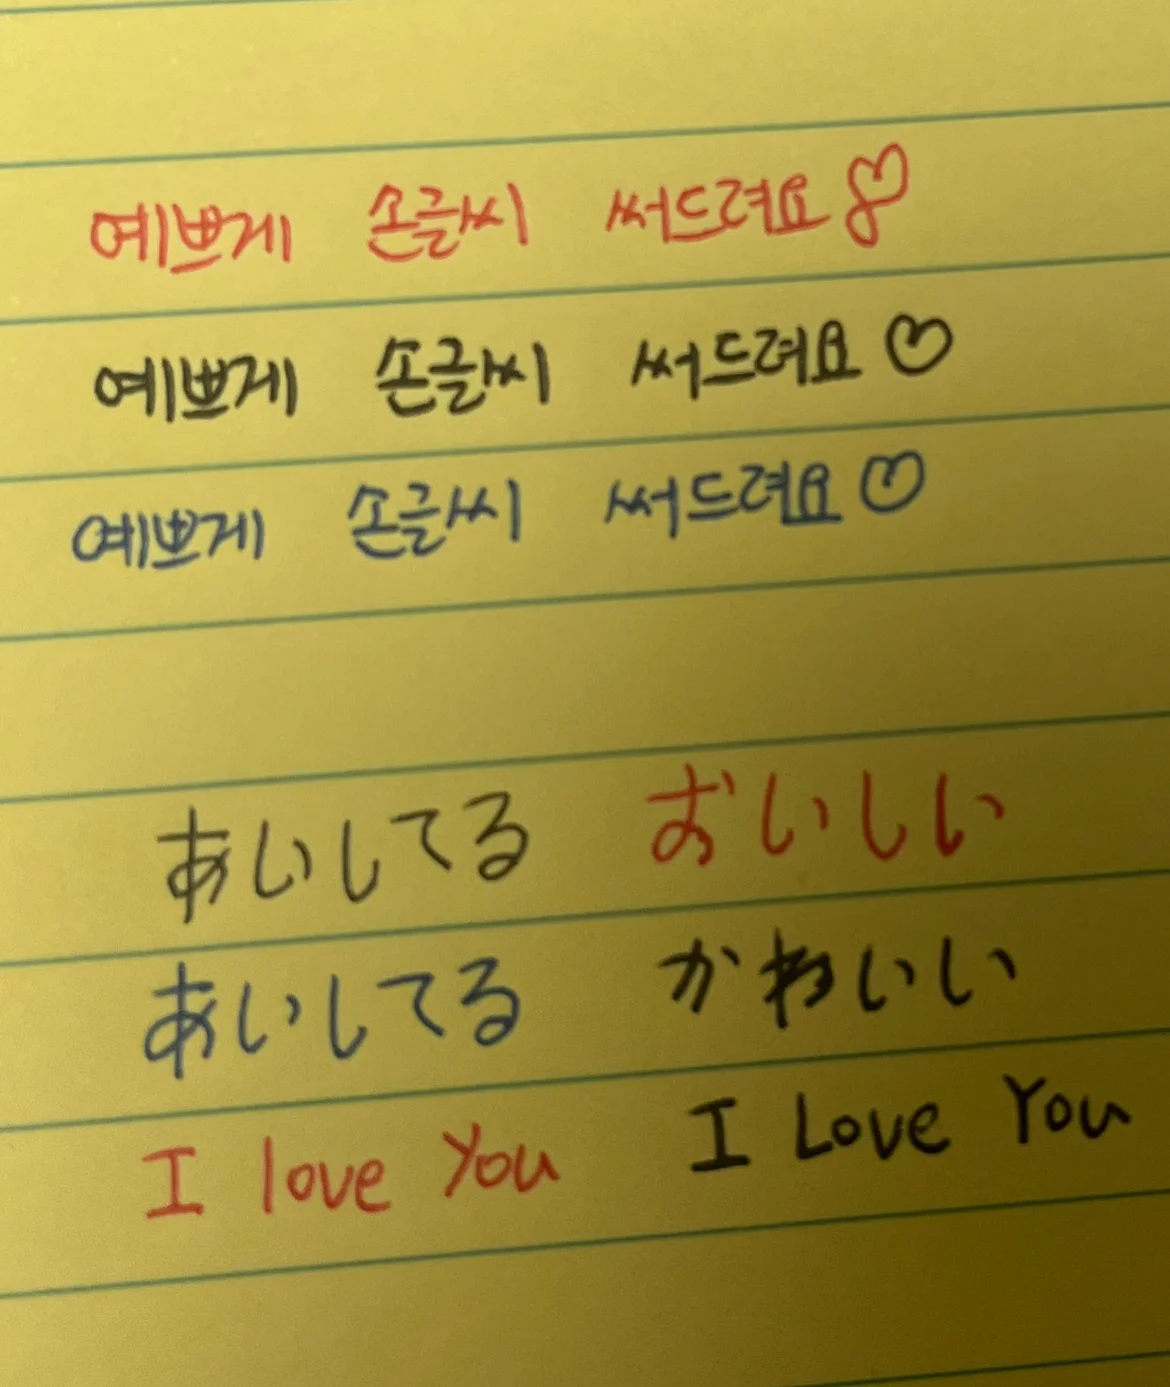 예쁘게 손글씨 써드려요♡
예쁘게 손글씨 써드려요♡
예쁘게 손글씨 써드려요♡
あいしてる おいしい
あいしてる かわいい
I love You I Love You